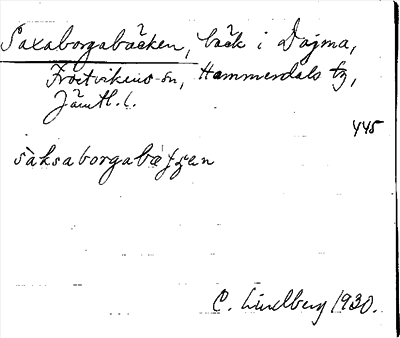 Saxaborgabäcken, bäck i Dajma,
Frostvikens sn, Hammerdals tg,
Jämtl. l.
445
sàksaborgabæʹƫʂen
C. Lindberg 1930.